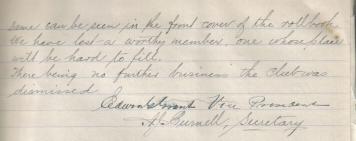 same can be seen in the front cover of the rollbook
We have lost a worthy member, one whose place
will be hard to fill.
There being no further business the Club was
dismissed
Edward Grant Vice President
Burnell, Secretary